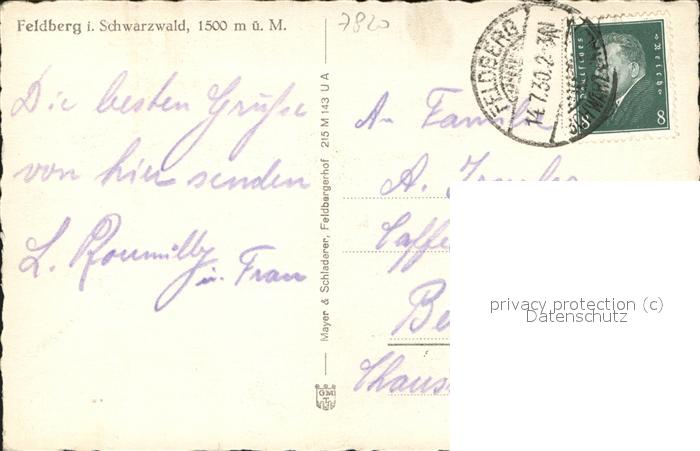 Feldberg i. Schwarzwald, 1500 m ü. M.
7820
Die besten Grüße
von hier senden
u. Frau
Mayer & Schladerer, Feldbergerhof 215 M 143 U A
GM
FELDBERG
14.7.30.2-3N
SCHWARZWALD
8
An Familie
A.
privacy protection (c)
Datenschutz